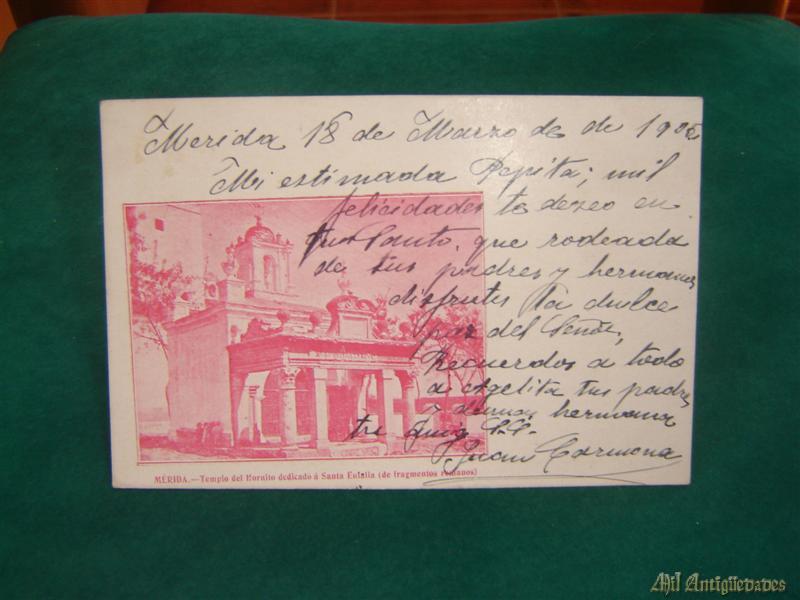 Merida 18 de Marzo de de 1905
Mi estimada Pepita; mil
felicidades te deseo en
tu Santo, que rodeada
de tus padres y hermanas
disfrutes la dulce
paz del Señor,
Recuerdos a todo
a Agelita tus padres
y demas hermana
Juan Carmona
MÉRIDA.—Templo del Hornito dedicado á Santa Eulalia (de fragmentos romanos)
Mil Antigüedades